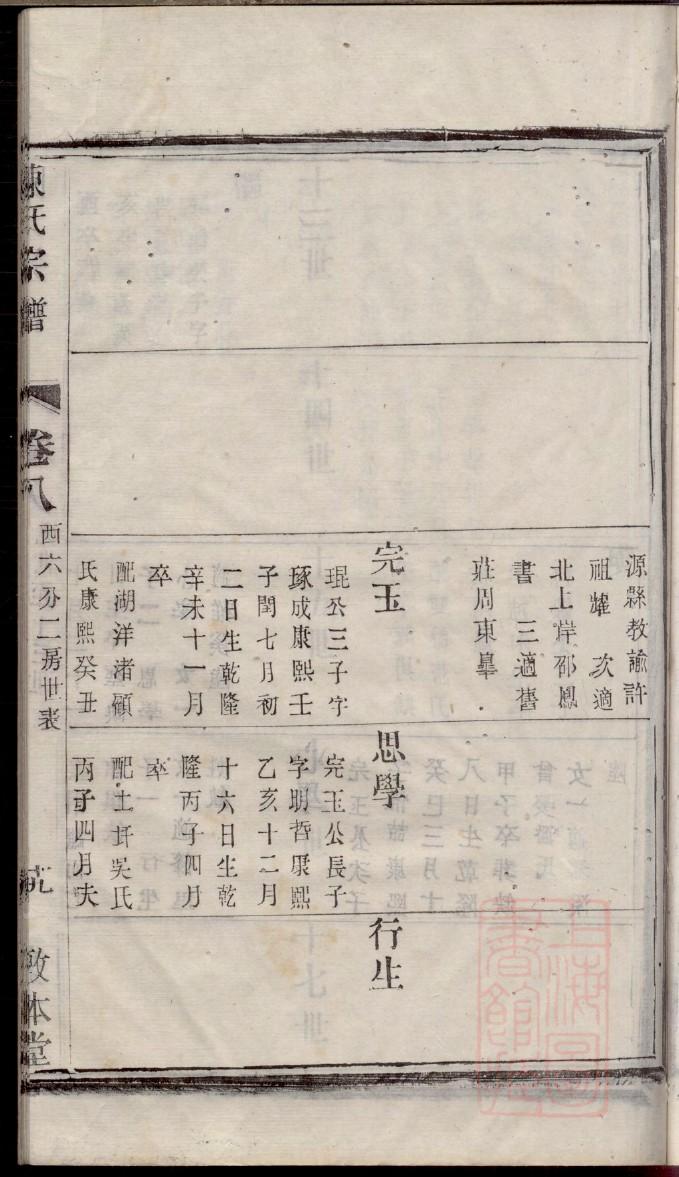 源縣教諭許
祖耀　次適
北上岸邵鳳
書　三適舊
莊周東臯
完玉
琨公三子字
琢成康熙壬
子閏七月初
二日生乾隆
辛未十一月
卒
配湖洋渚顧
氏康熙癸丑
思學
完玉公長子
字明哲康熙
乙亥十二月
十六日生乾
隆丙子四月
卒
配土圩吳氏
丙子四月夫
行生
陳氏宗譜
卷八
西六分二房世表
敦本堂
上海圖書館藏